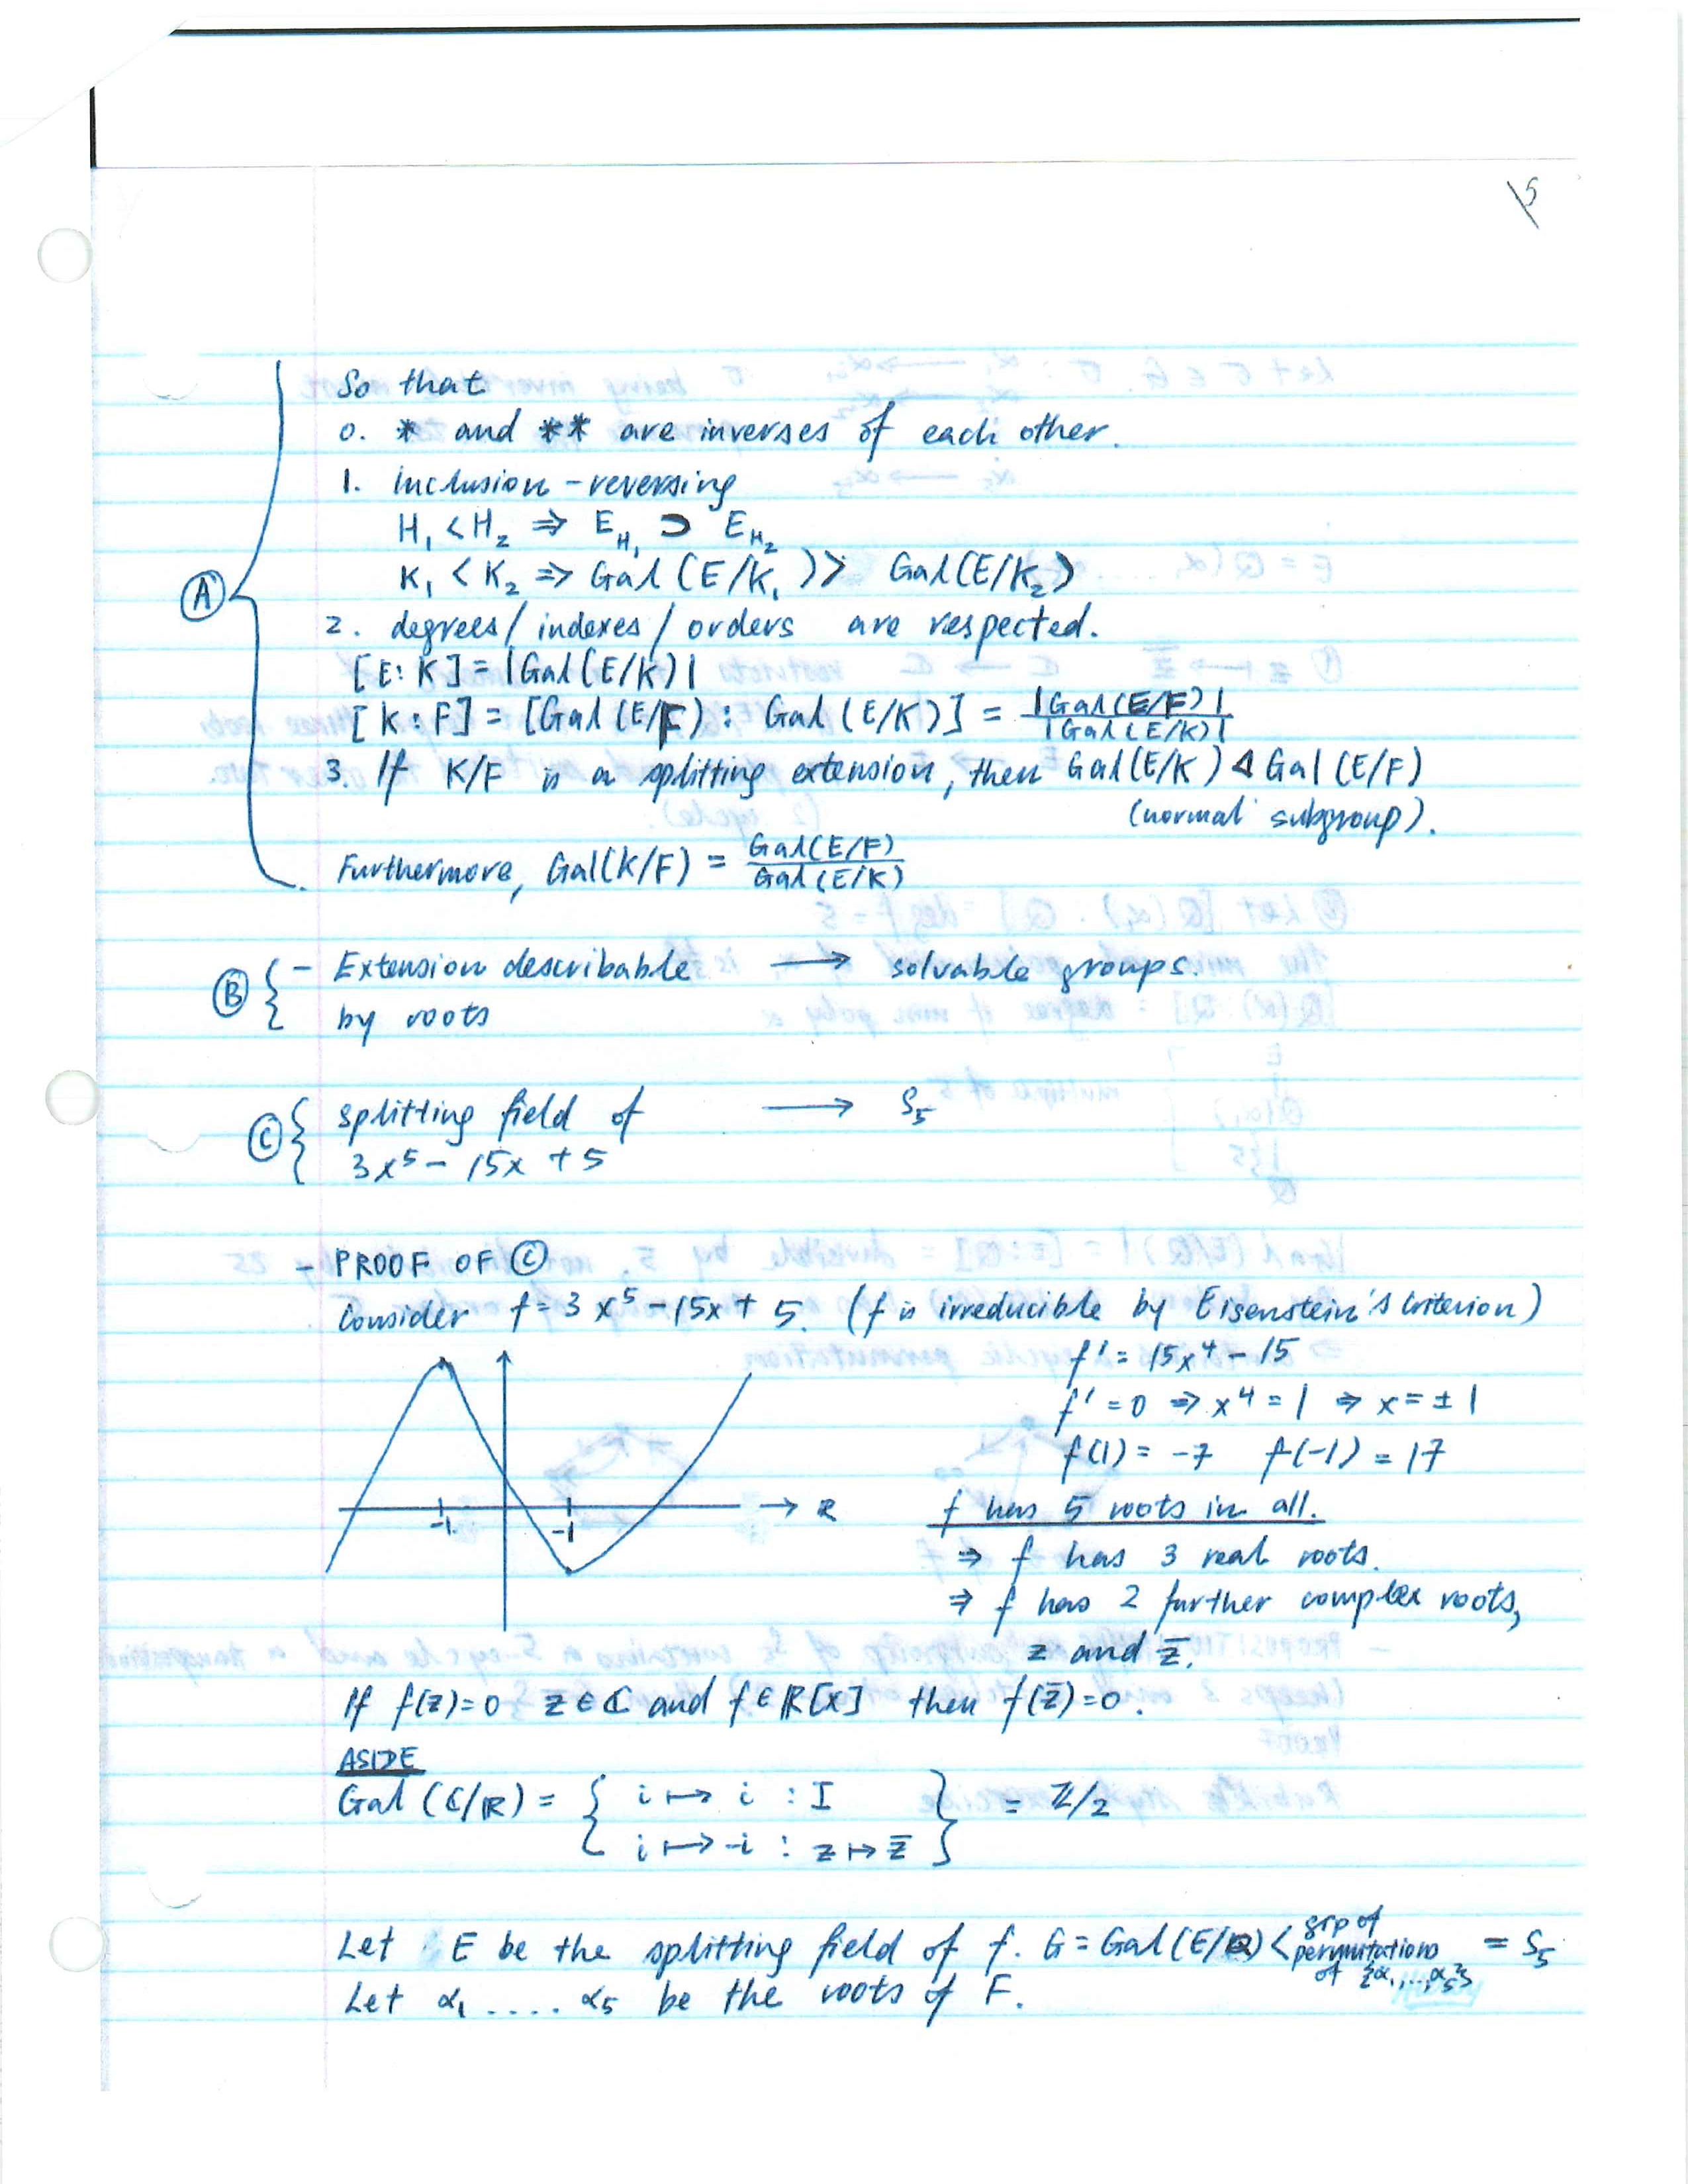 15
So that
0. * and ** are inverses of each other.
1. inclusion-reversing
H₁ < H₂ ⇒ E_H₁ ⊃ E_H₂
K₁ < K₂ ⇒ Gal(E/K₁) > Gal(E/K₂)
Ⓐ
2. degrees/indexes/orders are respected.
[E:K] = |Gal(E/K)|
[K:F] = [Gal(E/F) : Gal(E/K)] = |Gal(E/F)| / |Gal(E/K)|
3. If K/F is a splitting extension, then Gal(E/K) ⊲ Gal(E/F)
(normal subgroup).
Furthermore, Gal(K/F) = Gal(E/F) / Gal(E/K)
Ⓑ { - Extension describable ⟶ solvable groups.
by roots
Ⓒ { splitting field of ⟶ S₅
3x⁵ - 15x + 5
- PROOF OF Ⓒ
Consider f = 3x⁵ - 15x + 5. (f is irreducible by Eisenstein's Criterion)
f' = 15x⁴ - 15
f' = 0 ⇒ x⁴ = 1 ⇒ x = ± 1
f(1) = -7 f(-1) = 17
-1 -1 → R
f has 5 roots in all.
⇒ f has 3 real roots.
⇒ f has 2 further complex roots,
z and z̄.
If f(z)=0 z ∈ ℂ and f ∈ ℝ[x] then f(z̄)=0.
ASIDE
Gal (ℂ/ℝ) = { i ↦ i : I } = ℤ/2
i ↦ -i : z ↦ z̄
Let E be the splitting field of f. G = Gal(E/ℚ) < grp of permutations of {α₁,...,α₅} = S₅
Let α₁ .... α₅ be the roots of F.